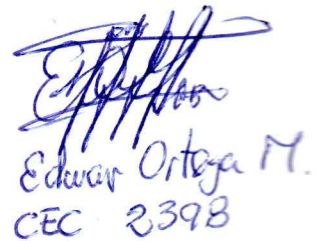 Edwar Ortega M.
CEC 2398